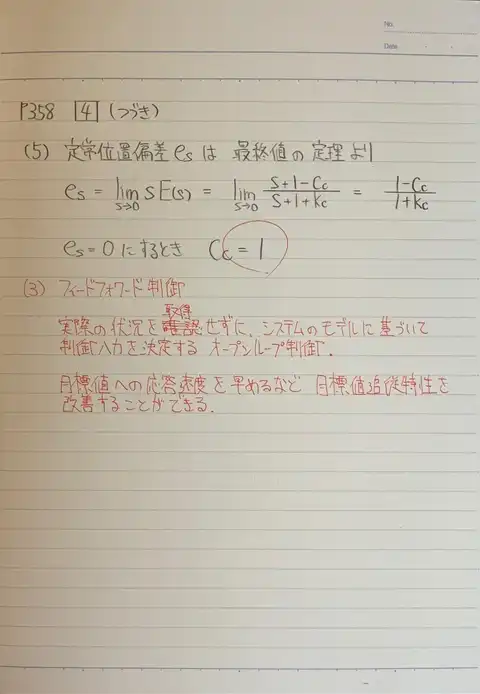 No.
Date
P358 [4] (つづき)
(5) 定常位置偏差 es は 最終値の定理より
es = lim s→0 sE(s) = lim s→0 (s+1-Cc)/(s+1+Kc) = (1-Cc)/(1+Kc)
es = 0 にするとき Cc = 1
(3) フィードフォワード制御
取得
実際の状況を確認せずに、システムのモデルに基づいて
制御入力を決定する オープンループ制御。
目標値への応答速度を早めるなど 目標値追従特性を
改善することができる.